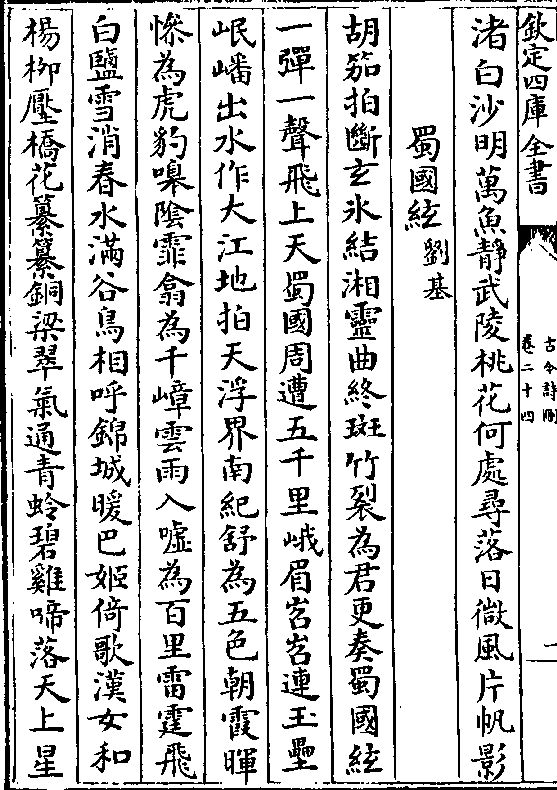 欽定四庫全書
古今詩刪
卷二十四
一
渚白沙明萬魚靜武陵桃花何處尋落日微風片帆影
蜀國絃劉基
胡笳拍斷玄氷結湘靈曲終斑竹裂為君更奏蜀國絃
一彈一聲飛上天蜀國周遭五千里峨眉岧岧連玉壘
岷嶓出水作大江地拍天浮界南紀舒為五色朝霞暉
慘為虎豹嘷陰霏翕為千嶂雲雨入噓為百里雷霆飛
白鹽雪消春水滿谷鳥相呼錦城暖巴姬倚歌漢女和
楊柳壓橋花纂纂銅梁翠氣通青蛉碧雞啼落天上星